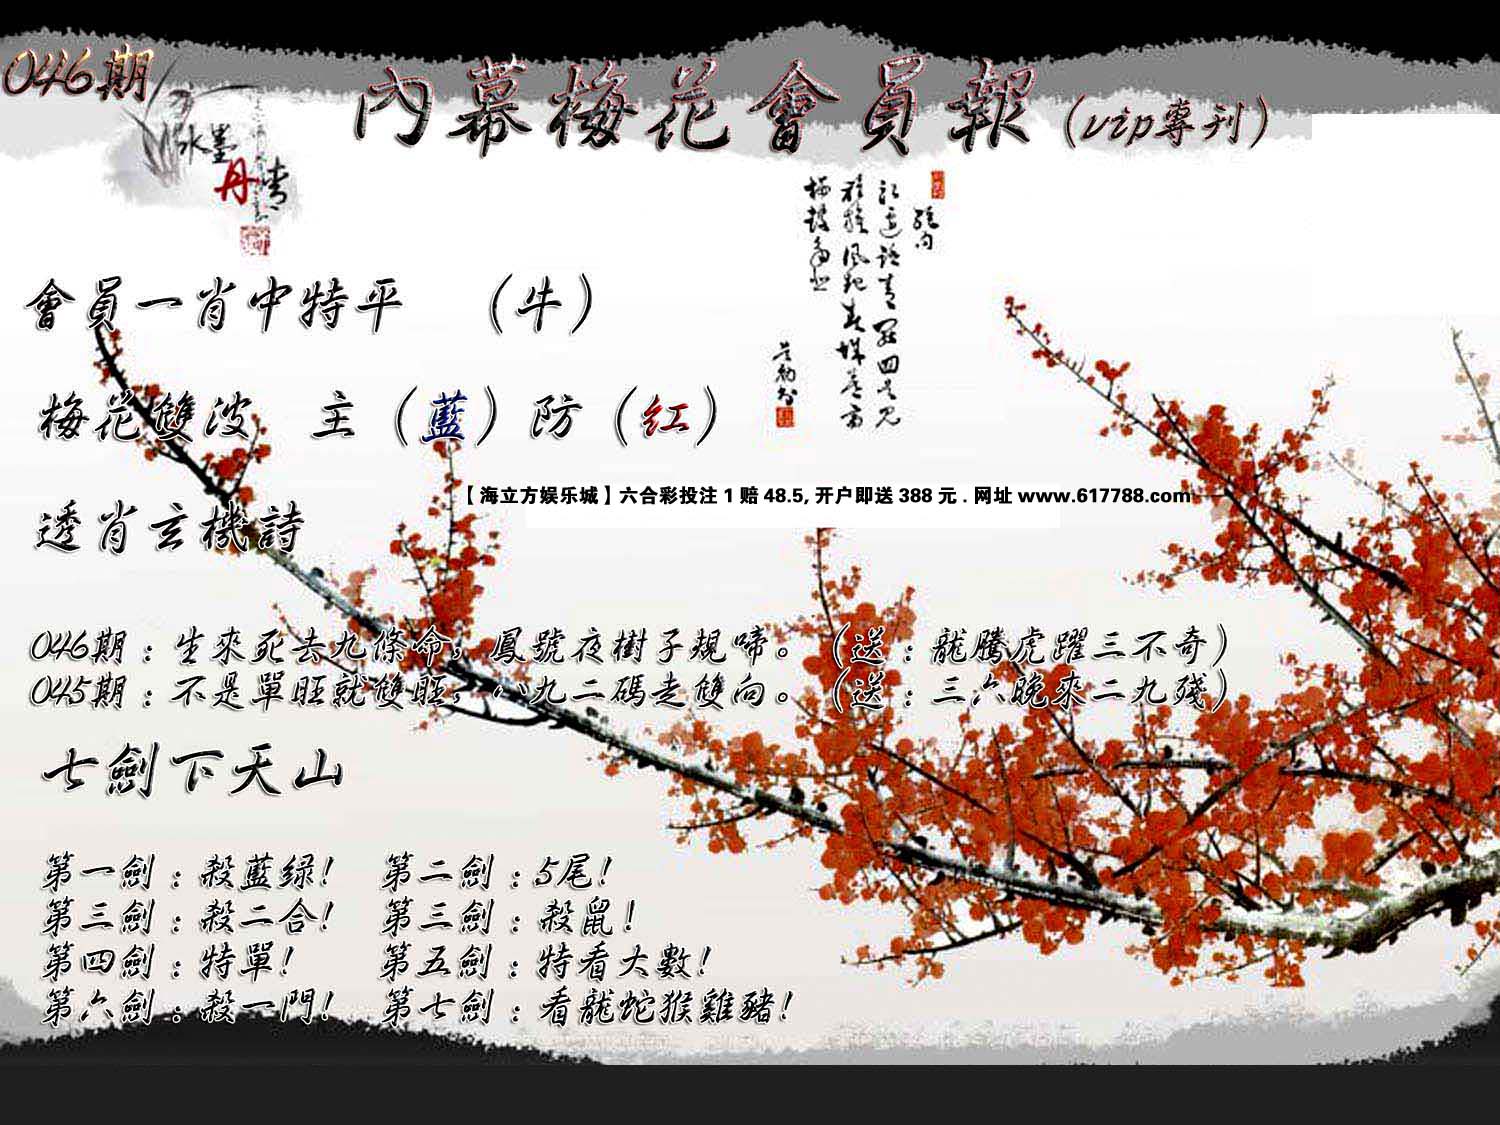 046期
內幕梅花會員報(vip專刊)
水墨
丹青
會員一肖中特平 (牛)
梅花雙波 主(藍)防(红)
【海立方娱乐城】六合彩投注1赔48.5,开户即送388元.网址www.617788.com
透肖玄機詩
046期：生來死去九條命，鳳號夜樹子規啼。(送：龍騰虎躍三不奇)
045期：不是單旺就雙旺，八九二碼走雙向。(送：三六晚來二九殘)
七劍下天山
第一劍：殺藍绿! 第二劍：5尾!
第三劍：殺二合! 第三劍：殺鼠!
第四劍：特單! 第五劍：特看大數!
第六劍：殺一門! 第七劍：看龍蛇猴雞豬!